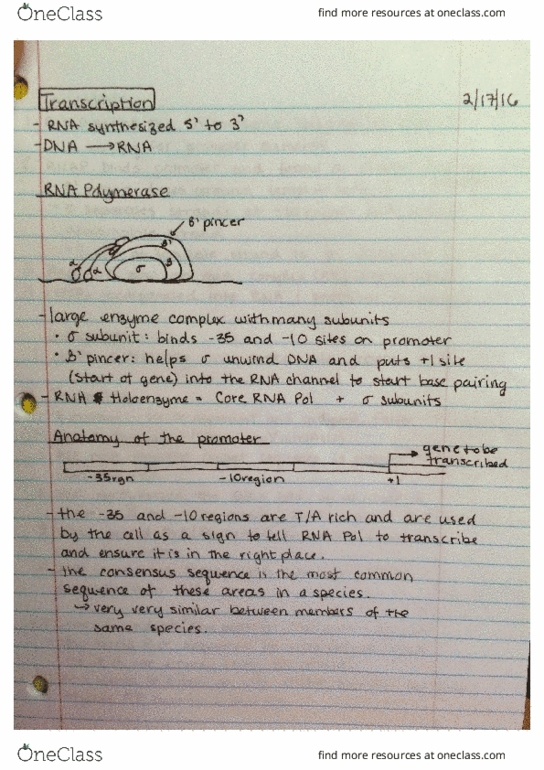 OneClass find more resources at oneclass.com
Transcription 2/17/16
- RNA synthesized 5' to 3'
- DNA → RNA
RNA Polymerase
β' pincer
α α β' β σ
- large enzyme complex with many subunits
• σ subunit: binds -35 and -10 sites on promoter
• β' pincer: helps σ unwind DNA and puts +1 site
(start of gene) into the RNA channel to start base pairing
- RNA Holoenzyme = Core RNA Pol + σ subunits
Anatomy of the promoter
gene to be
transcribed
-35rgn -10region +1
- the -35 and -10 regions are T/A rich and are used
by the cell as a sign to tell RNA Pol to transcribe
and ensure it is in the right place.
- the consensus sequence is the most common
sequence of these areas in a species.
↳ very very similar between members of the
same species.
OneClass find more resources at oneclass.com